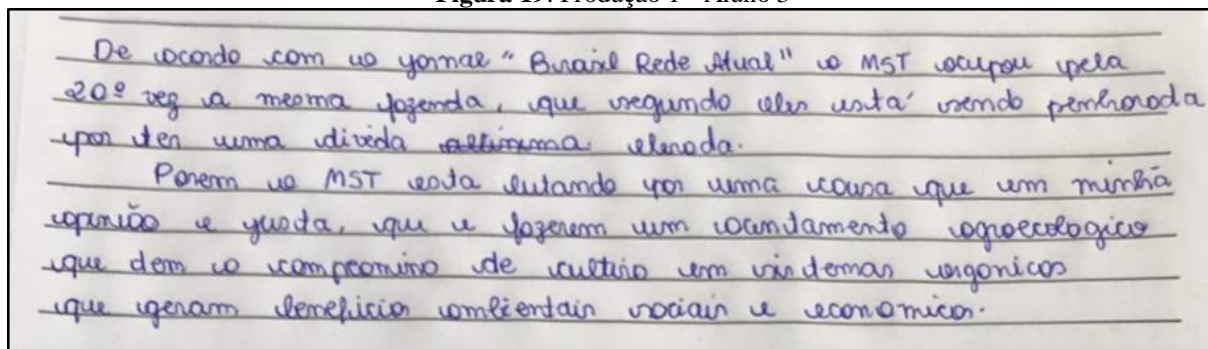 Figura 19: Produção 1 – Aluno 3
De acordo com o jornal "Brasil Rede Atual" o MST ocupou pela
20º vez a mesma fazenda, que segundo eles está sendo penhorada
por ter uma divida altissima elevada.
Porem o MST esta lutando por uma causa que em minha
opinião e justa, que e fazerem um acandamento agroecologico
que dem o compromisso de cultivo em sistemas organicos
que geram beneficios ambientais sociais e economicos.